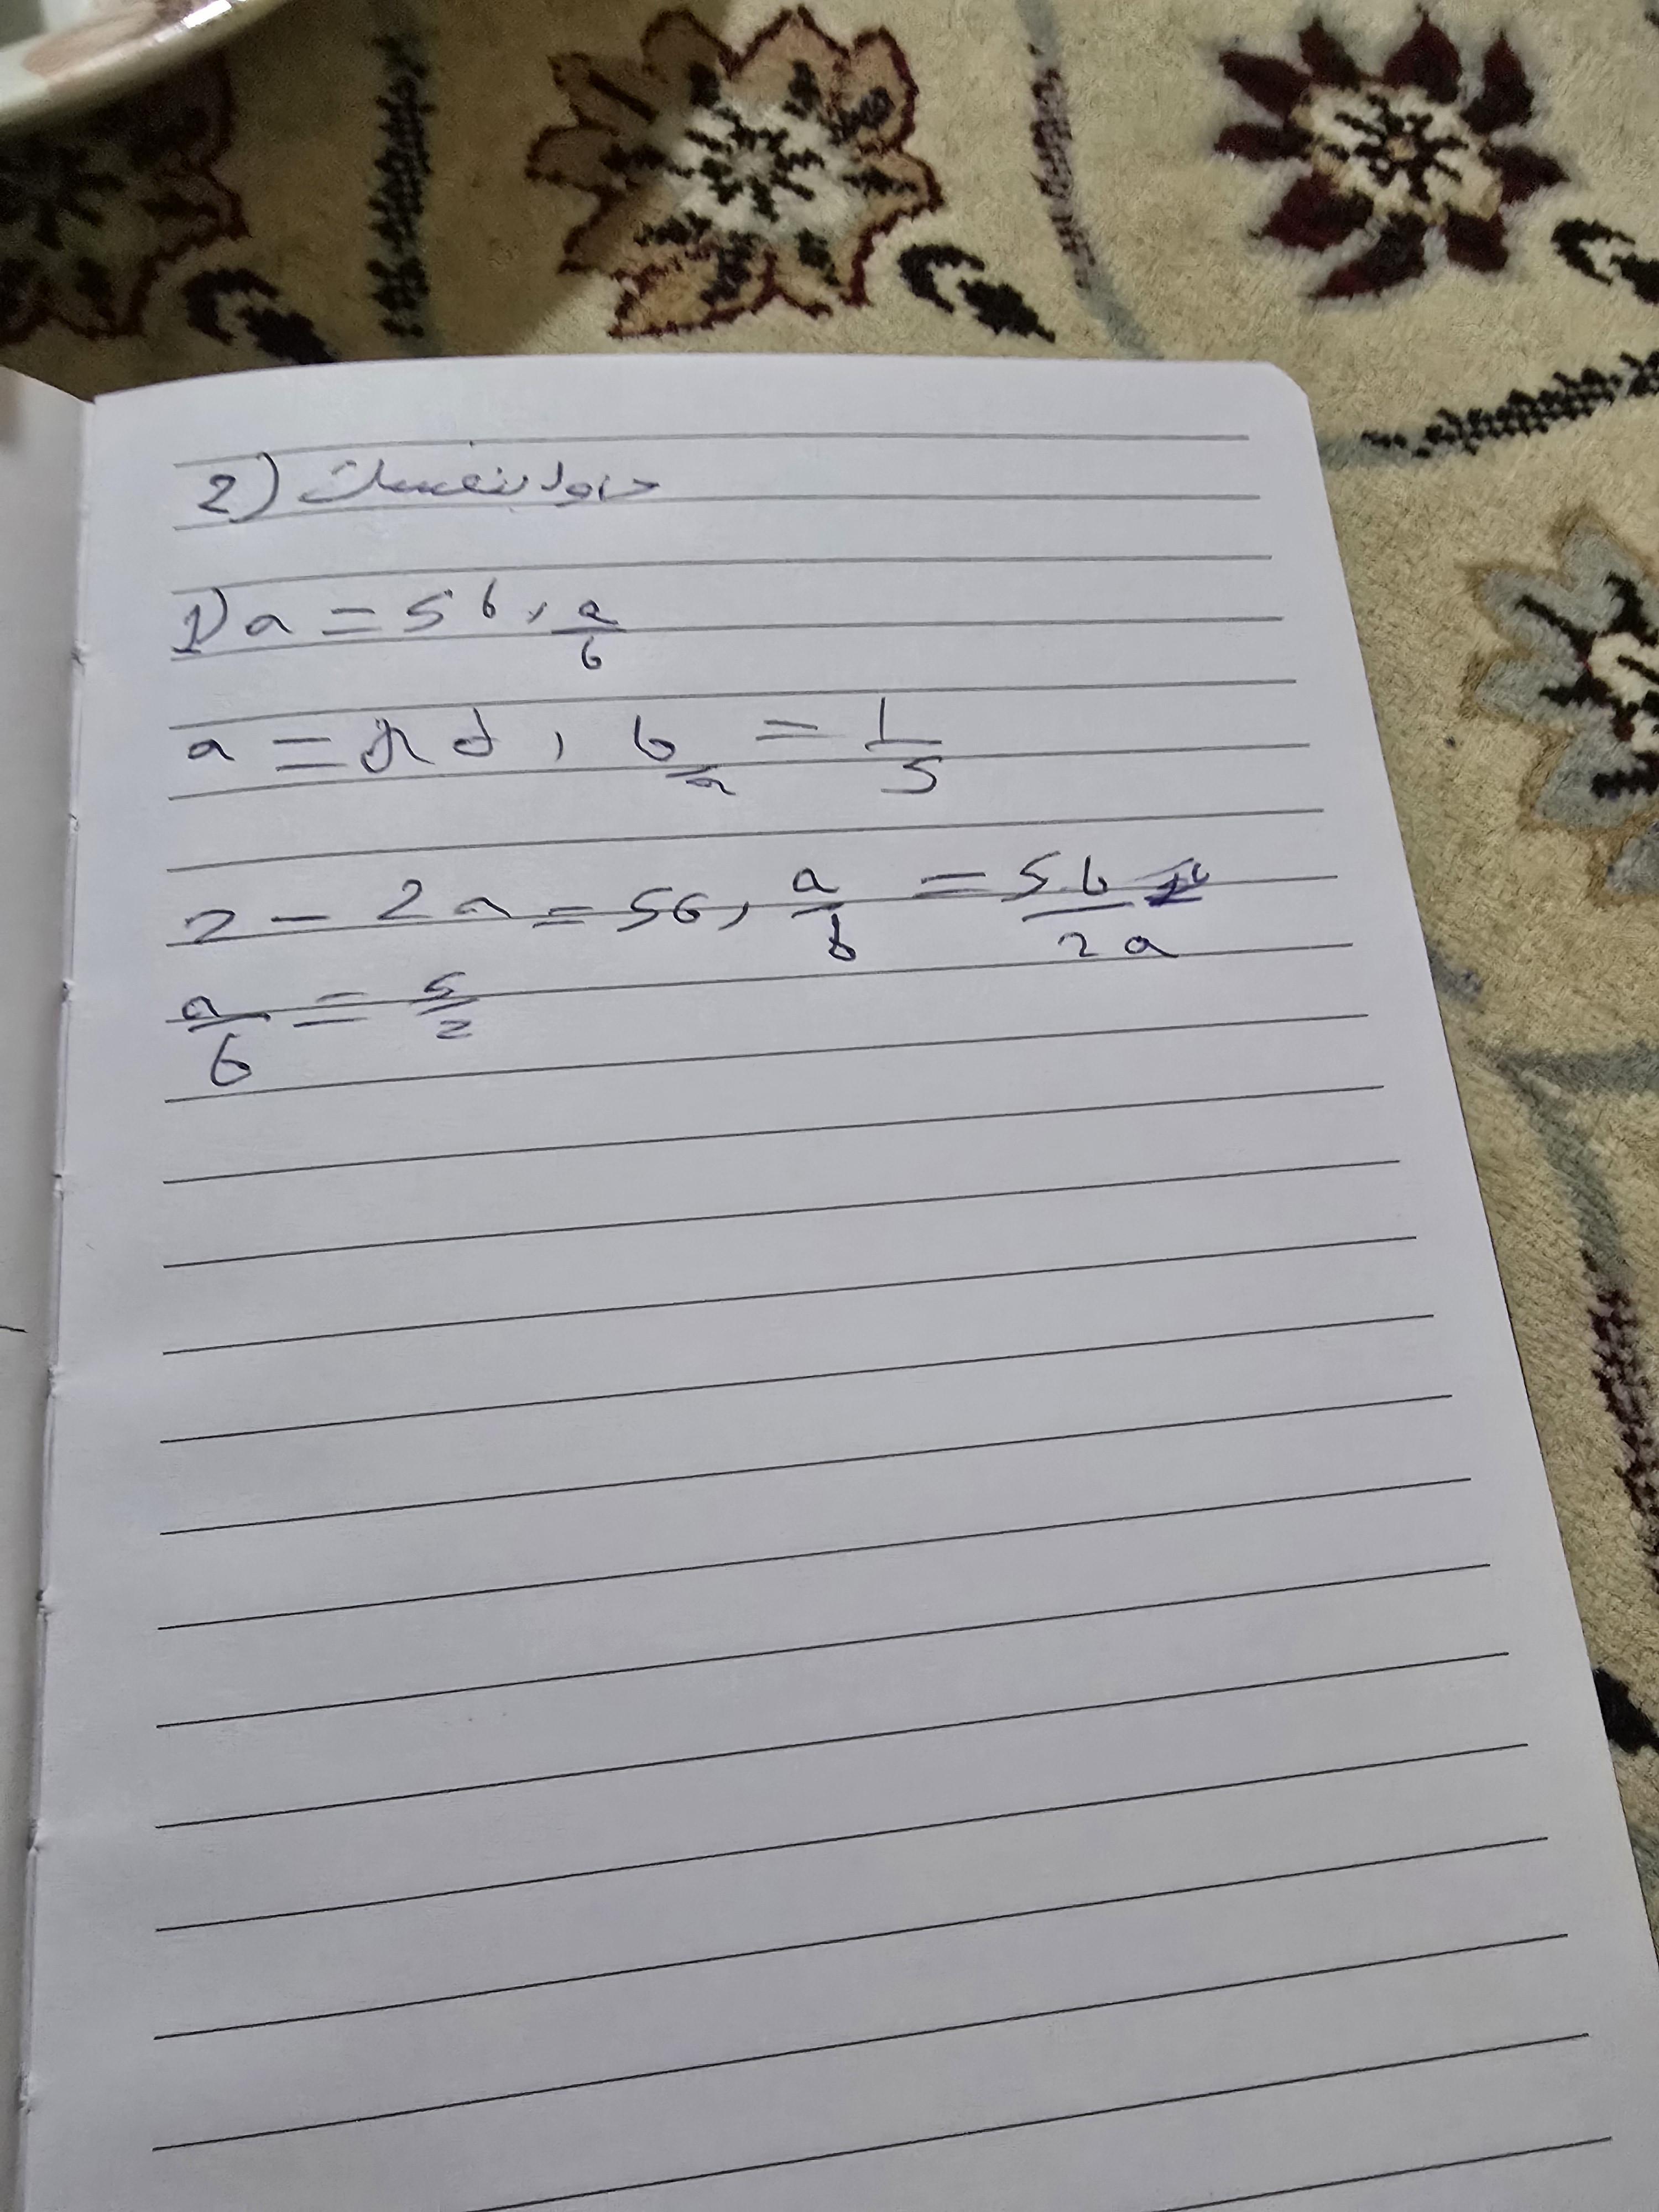 2) حاول بنفسك
1) a = 5b, a/b
a =, b/a = 1/5
2 - 2a = 5b, a/b = 5b/2a
a/b = 5/2